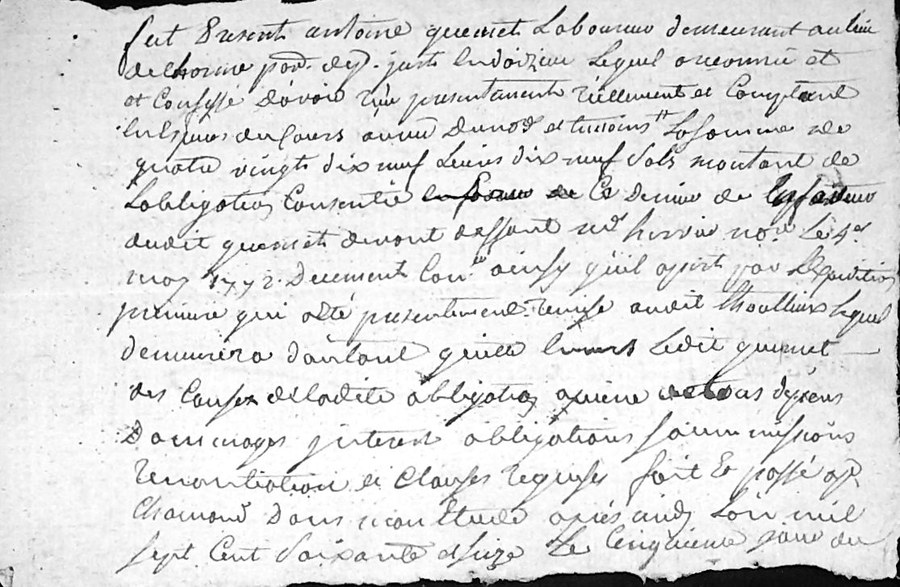 fut Present antoine quemet Laboureur demeurant au lieu
de lhorme par. de St. just en doizieu Lequel a reconnu et
et Confessé davoir reçu presentement réellement et Comptant
En Espèces du Cours au vu du no.re et temoins La Somme de
quatre vingts dix neuf Livres dix neuf Sols montant de
Lobligation Consentie en faveur de Ce dernier de
dudit quemet devant deffunt me no.re Le 4e
may 1772. Decement Con.lé ainsy qu'il apert par Lexpedition
premiere qui a été presentement remise audit Lequel
demeurera dautant quitte Envers Ledit quemet
des Causes de Ladite obligation apeine de tous depens
Dommages interest obligations soummissions
renontiation et Clauses requises fait et passé a St
Chamond Dans mon Etude aprés midy Lan mil
sept Cent Soixante et Seize Le Cinquieme jour du